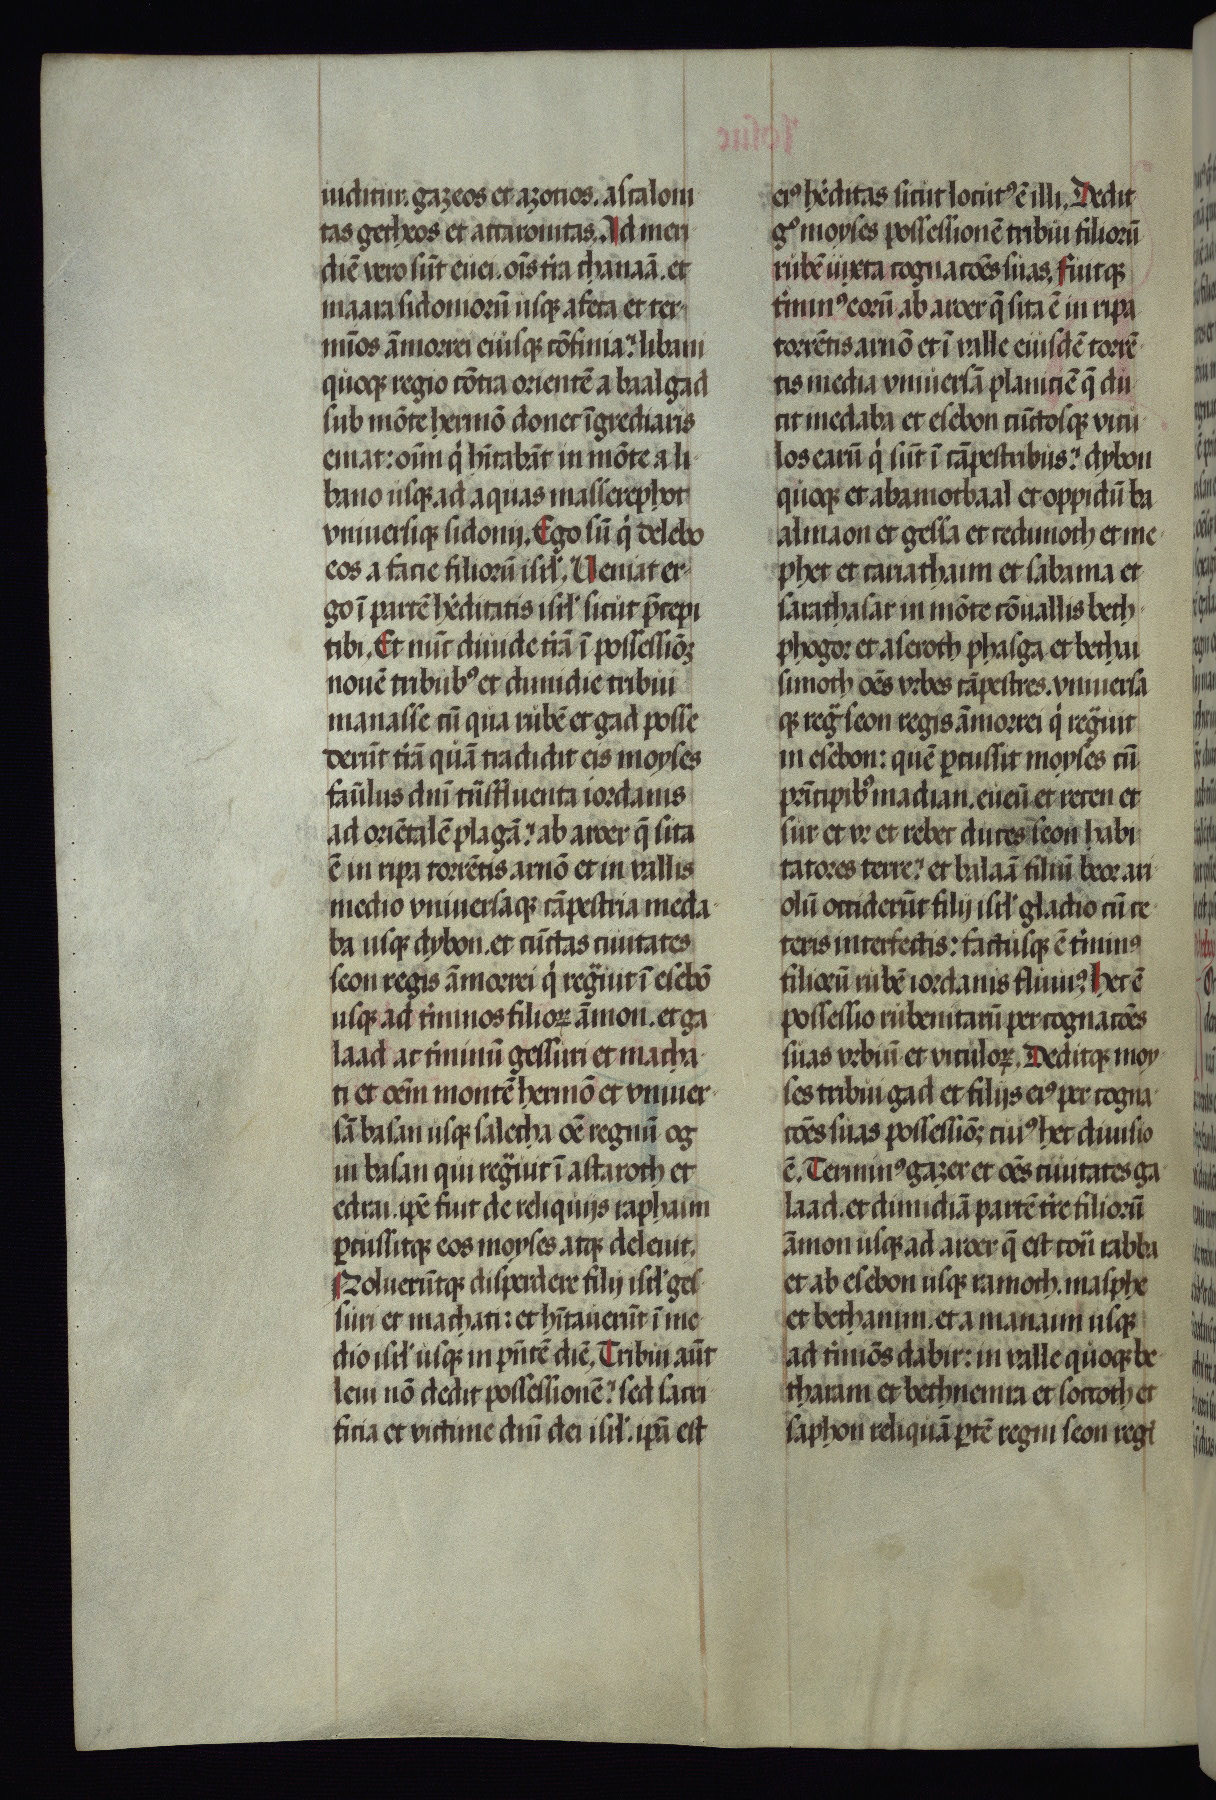 uiditur. gazeos et azotios. ascaloni
tas getheos et accaronitas. Ad meri
diē vero sūt euei. oīs t'ra chanaā. et
maara sidomorū usq; afeta et ter-
mīos āmorrei eiusq; cōfinia? libani
quoq; regio cōtra orientē a baal gad
sub mōte hermō donec īgrediaris
emat: oīm q' hītabāt in mōte a li
bano usq; ad aquas masserephot
vniuersiq; sidonij. Ego sū q' delebo
eos a facie filiorū isr'l. Ueniat er-
go ī partē h'editatis isr'l sicut p̄cepi
tibi. Et nūc diuide t'rā ī possessiōꝫ
nouē tribub9 et dimidie tribui
manasse cū qua rubē et gad posse
derūt t'rā quā tradidit eis moyses
faūlus dnī tūs fluenta iordanis
ad oriētalē plagā? ab aroer q̄ sita
ē in ripa torrētis arnō et in vallis
medio vniuersaq; cāpestria meda-
ba usq; dybon. et cūctas ciuitates
seon regis āmorrei q' reg̈uit ī esebō
usq; ad t'minos filioꝝ āmon. et ga
laad ac t'minū gessuri et macha-
ti et oēm montē hermō et vniuer
sā basan usq; salecha oē regnū og
in basan qui reg̈uit ī astaroth et
edrai. ipē fuit de reliquijs raphaim
ꝑcussitq; eos moyses atq; deleuit.
Noluerūtq; disperdere filij isr'l ges-
suri et machati: et hītauerūt ī me
dio isr'l usq; in pn̄tē diē. Tribui aūt
leui nō dedit possessionē? sed sacri
ficia et victime dnī dei isr'l. ipā est
ei9 h'editas sicut locut9 ē illi. Dedit
g° moyses possessionē tribui filiorū
rubē iuxta cognacōes suas. fuitq;
t'min9 eorū ab aroer q̄ sita ē in ripa
torrētis arnō et ī valle eiusdē torrē
tis media vniuersā planiciē q̄ du
cit medaba et esebon cūctosq; vicu
los earū q' sūt ī cāpestribus? dybon
quoq; et abamotbaal et oppidū ba
almaon et gessa et cedimoth et me
phet et cariathaim et sabama et
sarathasar in mōte cōuallis beth-
phogor et aseroth phasga et bethai
simoth oēs vrbes cāpestres. vniuersa
q; reg̈ seon regis āmorrei q' reg̈uit
in esebon: quē ꝑcussit moyses cū
prīcipib9 madian. eueū et recen et
sur et vr et rebet duces seon habi
tatores terre? et balaā filiū beor ari
olū occiderūt filij isr'l gladio cū ce
teris interfectis: factusq; ē t'min9
filiorū rubē iordanis fluui9? hec ē
possessio rubenitarū per cognacōes
suas vrbiū et viculoꝝ. Deditq; moy
ses tribui gad et filijs ei9 per cogna
cōes suas possessiōꝫ cui9 hec diuisio
ē. Termin9 gazer et oēs ciuitates ga
laad. et dimidiā partē t're filiorū
āmon usq; ad aroer q̄ est cōn̄ rabba
et ab esebon usq; ramoth. masphe
et bethanim. et a manaim usq;
ad t'miōs dabir: in valle quoq; be
tharam et bethnemra et soccoth et
saphon reliquā ꝑtē regni seon regi